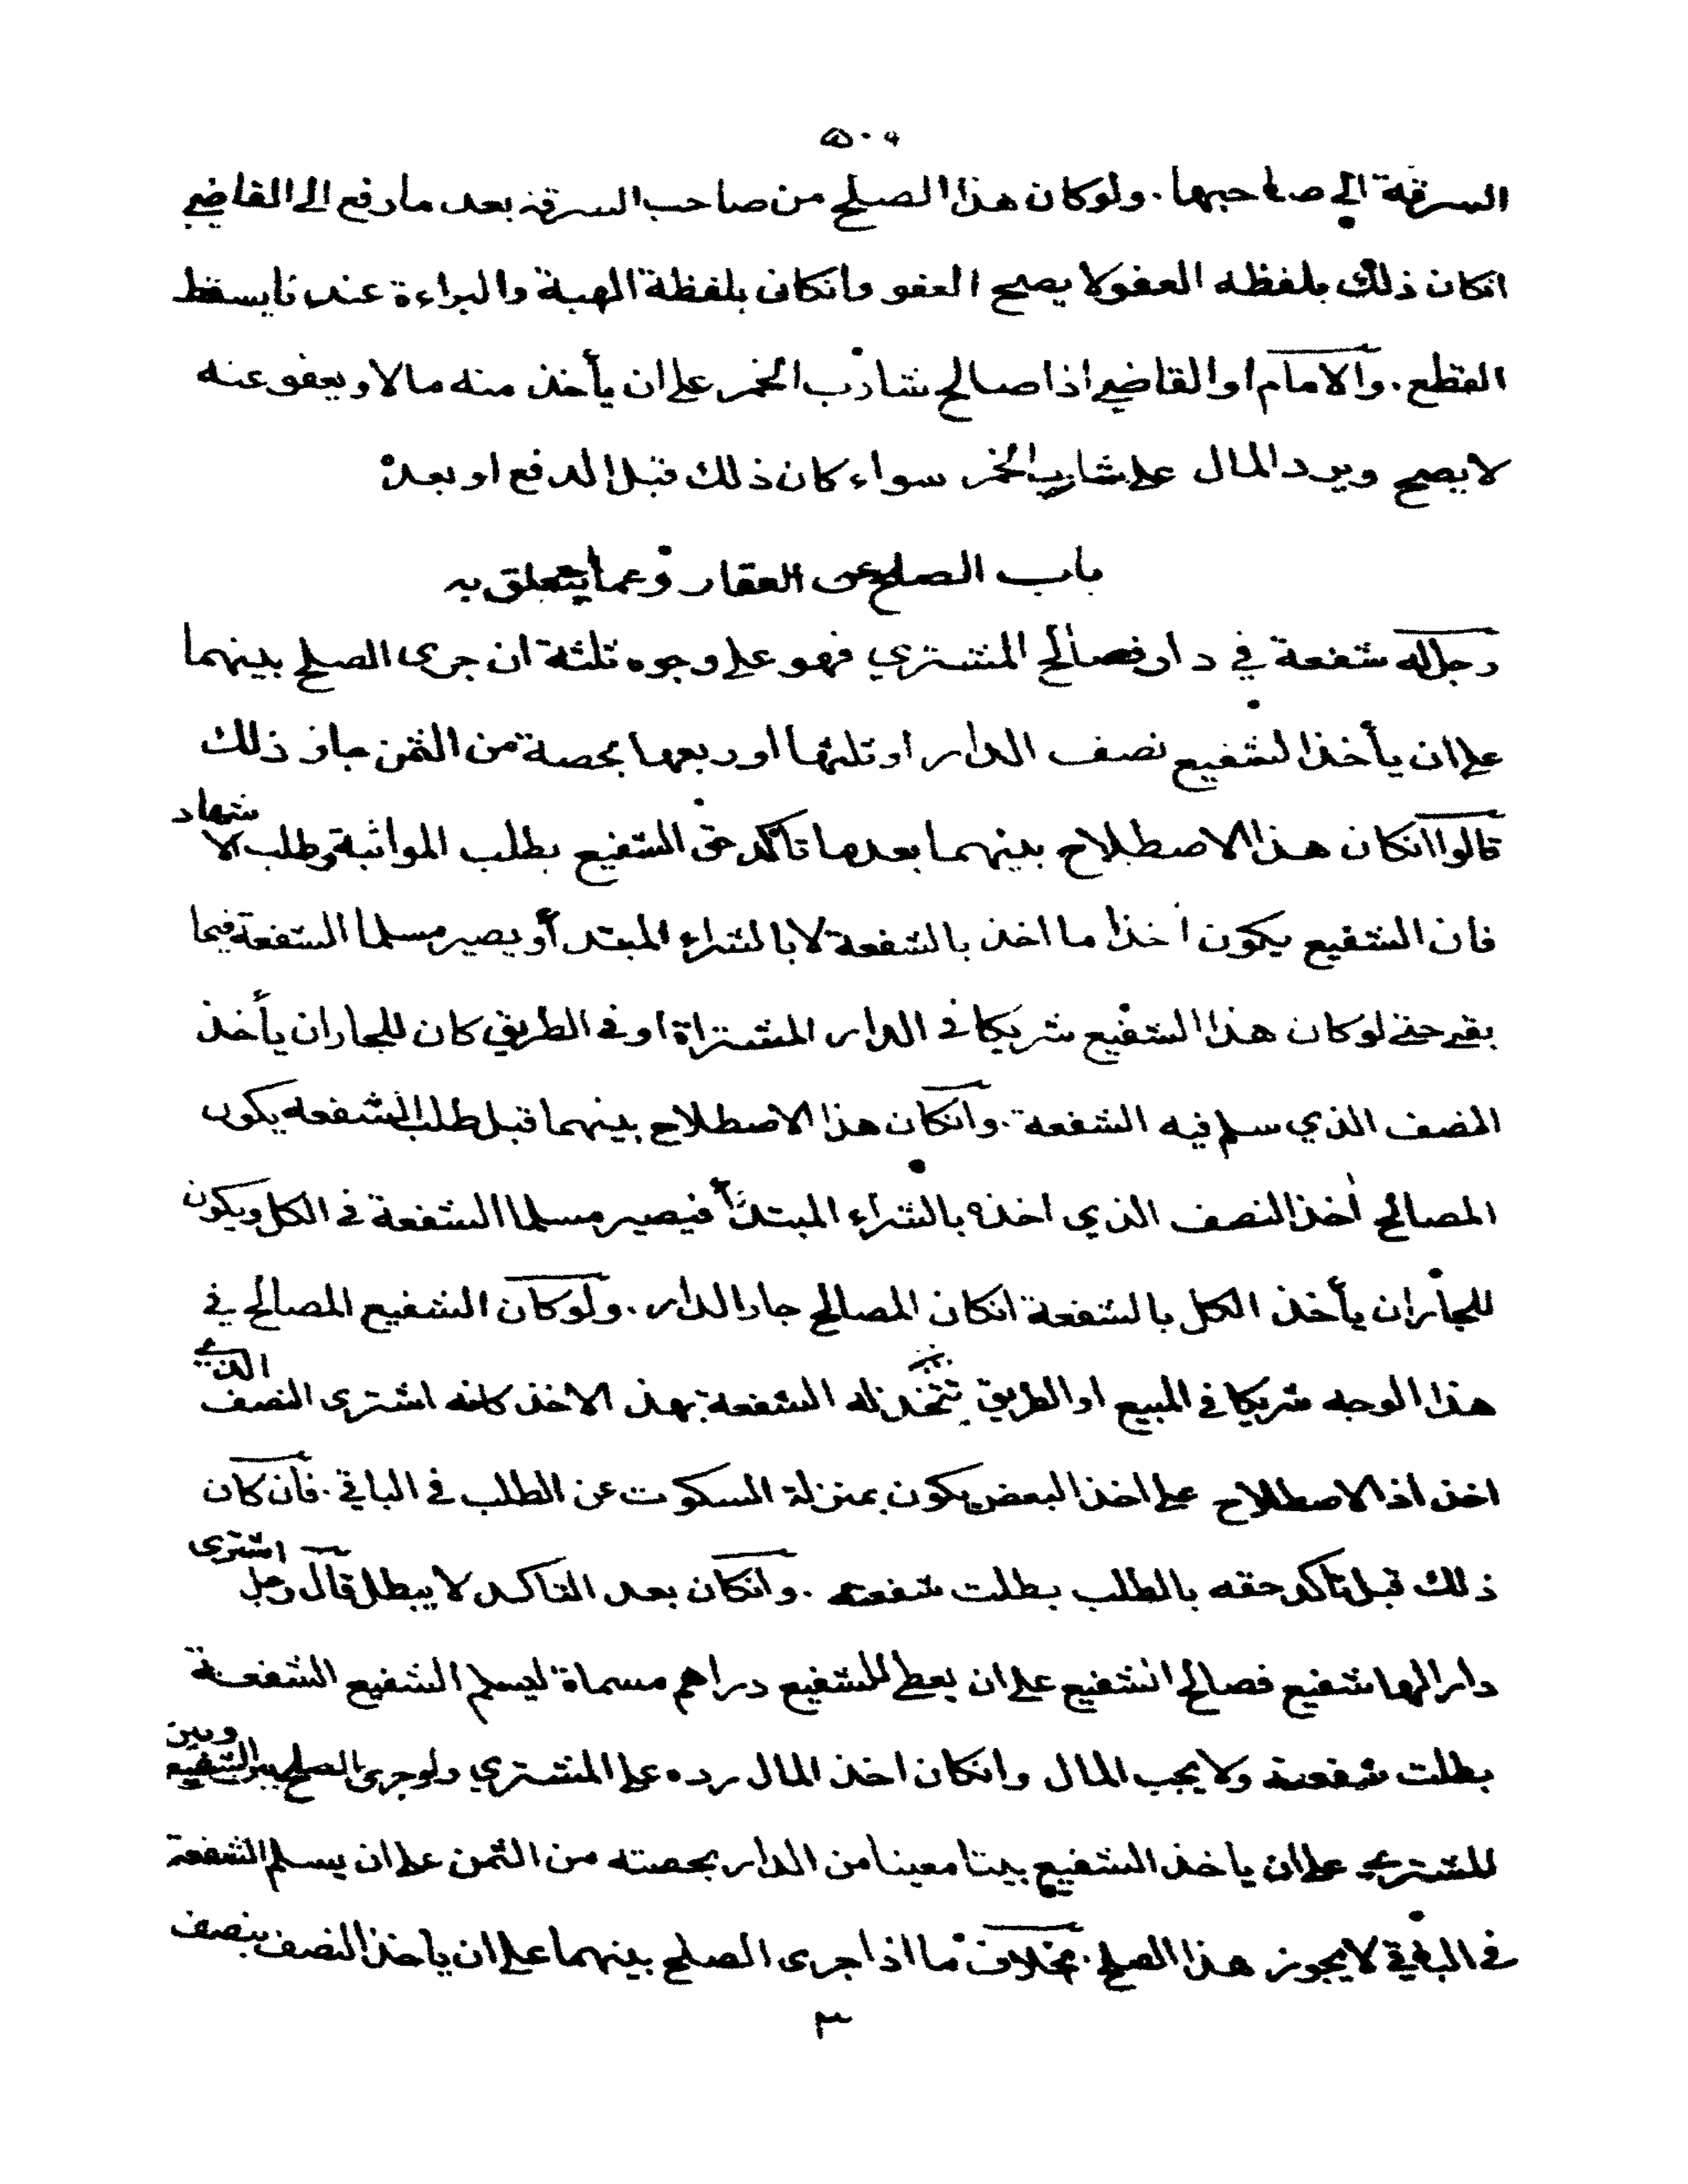 ٥٠٩
السرقة الى صاحبها . ولو كان هذا الصلح من صاحب السرقة بعد ما رفع الى القاضي
انكان ذلك بلفظه العفو لا يصح العفو وانكان بلفظة الهبة والبراءة عندنا يسقط
القطع . والامام او القاضي اذا صالح شارب الخمر على ان يأخذ منه مالا ويعفو عنه
لا يصح ويرد المال على شارب الخمر سواء كان ذلك قبل الدفع او بعده
باب الصلح عن العقار وعما يتعلق به
رجل له شفعة في دار فصالح المشتري فهو على وجوه ثلثة ان جرى الصلح بينهما
على ان يأخذ الشفيع نصف الدار او ثلثها او ربعها بحصة من الثمن جاز ذلك
قالوا انكان هذا الاصطلاح بينهما بعد ما تاكد حق الشفيع بطلب المواثبة وطلب الاشهاد
فان الشفيع يكون اخذا ما اخذ بالشفعة لا بالشراء المبتدأ ويصير مسلما الشفعة فيما
بقي حتى لو كان هذا الشفيع شريكا في الدار المشتراة او في الطريق كان للجار ان يأخذ
النصف الذي سلم فيه الشفعة . وانكان هذا الاصطلاح بينهما قبل طلب الشفعه يكون
المصالح اخذ النصف الذي اخذه بالشراء المبتدأ فيصير مسلما الشفعة في الكل ويكون
للجار ان يأخذ الكل بالشفعة انكان المصالح جار الدار . ولو كان الشفيع المصالح في
هذا الوجه شريكا في المبيع او الطريق تتخذ له الشفعة بهذ الاخذ كانه اشترى النصف الذي
اخذ اذ الاصطلاح على اخذ البعض يكون بمنزلة السكوت عن الطلب في الباقي . فان كان
ذلك قبل تاكد حقه بالطلب بطلت شفعته . وانكان بعد التاكد لا يبطل قال رجل اشترى
دار الها شفيع فصالح الشفيع على ان يعطي للشفيع دراهم مسماة ليسلم الشفيع الشفعة
بطلت شفعته ولا يجب المال وانكان اخذ المال رده على المشتري ولو جرى الصلح بين الشفيع وبين
للمشتري على ان ياخذ الشفيع بيتا معينا من الدار بحصته من الثمن على ان يسلم الشفعة
في الباقي لا يجوز هذا الصلح . بخلاف ما اذا جرى الصلح بينهما على ان ياخذ النصف بنصف